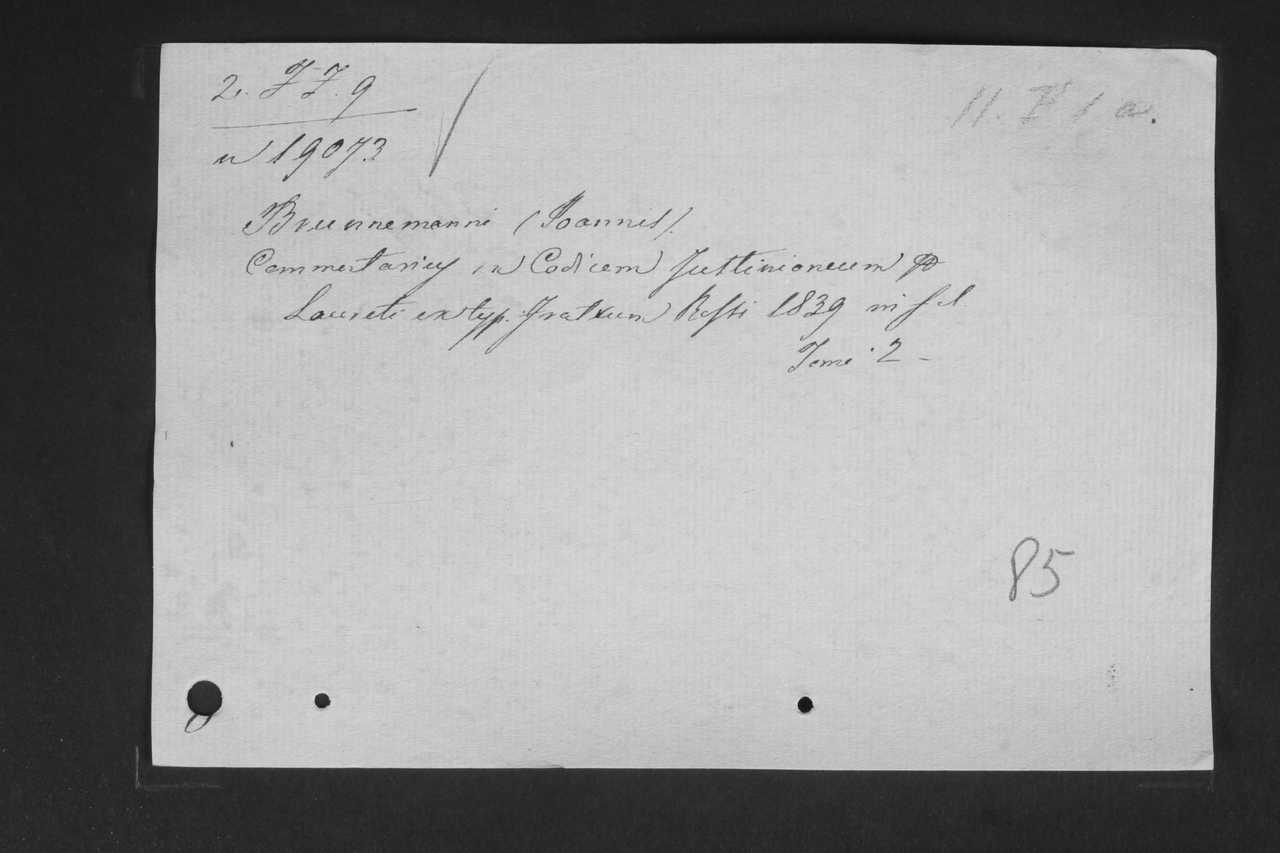 2. F. F. 9
11. F 1 a.
n 19073
Brunnemanni (Joannis).
Commentarius in Codicem Justinianeum
Laureti ex typ. Fratrum Rossi 1839 in fol
Tomi 2 -
85